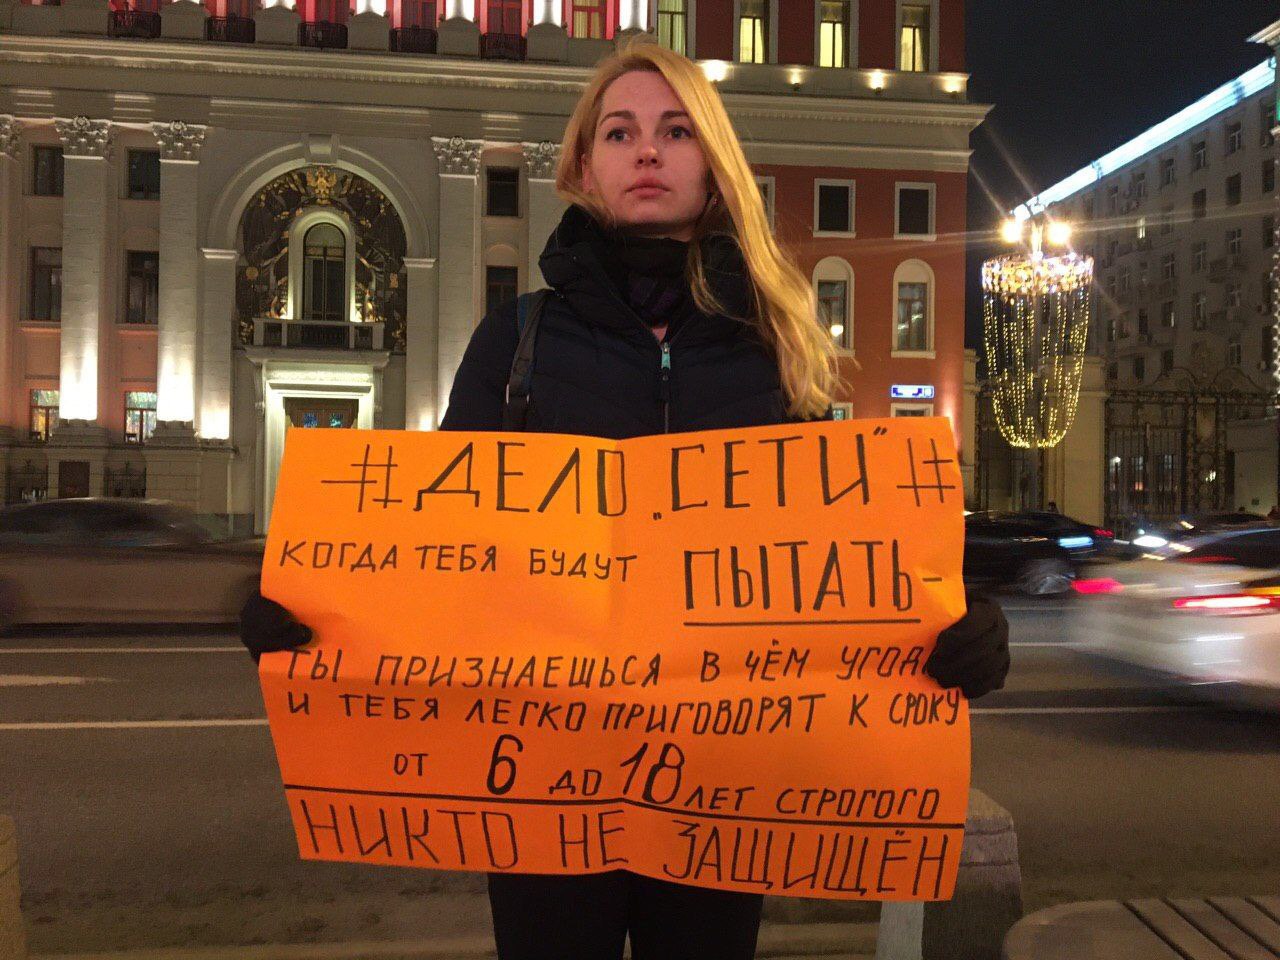 #ДЕЛО „СЕТИ“#
КОГДА ТЕБЯ БУДУТ ПЫТАТЬ-
ТЫ ПРИЗНАЕШЬСЯ В ЧЁМ
И ТЕБЯ ЛЕГКО ПРИГОВОРЯТ К СРОКУ
ОТ 6 ДО 18 ЛЕТ СТРОГОГО
НИКТО НЕ ЗАЩИЩЁН